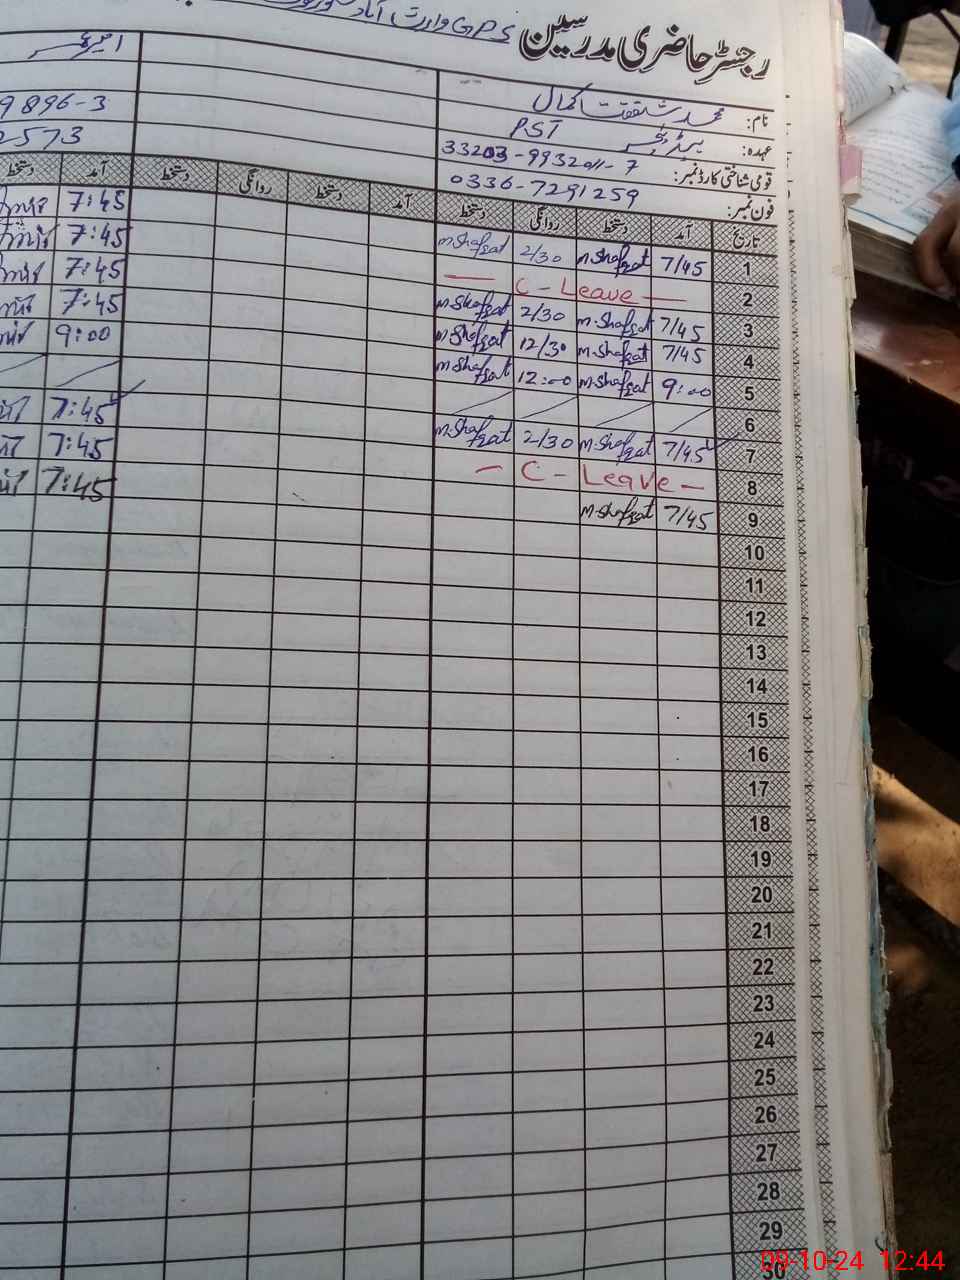 GPS وارث آباد
رجسٹر حاضری مدرسین
نام: محمد شفقت کمال
امیر
عہدہ: ہیڈ ٹیچر PST
9896-3
قومی شناختی کارڈ نمبر: 33203-9932011-7
2573
فون نمبر: 0336-7291259
تاریخ آمد دستخط روانگی دستخط آمد دستخط روانگی دستخط آمد دستخط
1 7/45 M.Shafqat 2/30 M.Shafqat 7:45
2 — C - Leave — 7:45
3 7/45 M.Shafqat 2/30 M.Shafqat 7:45
4 7/45 M.Shafqat 12/30 M.Shafqat 7:45
5 9:00 M.Shafqat 12:00 M.Shafqat 9:00
6
7 7/45 M.Shafqat 2/30 M.Shafqat 7:45
8 — C - Leave — 7:45
9 7/45 M.Shafqat 7:45
10
11
12
13
14
15
16
17
18
19
20
21
22
23
24
25
26
27
28
29
30
09-10-24 12:44